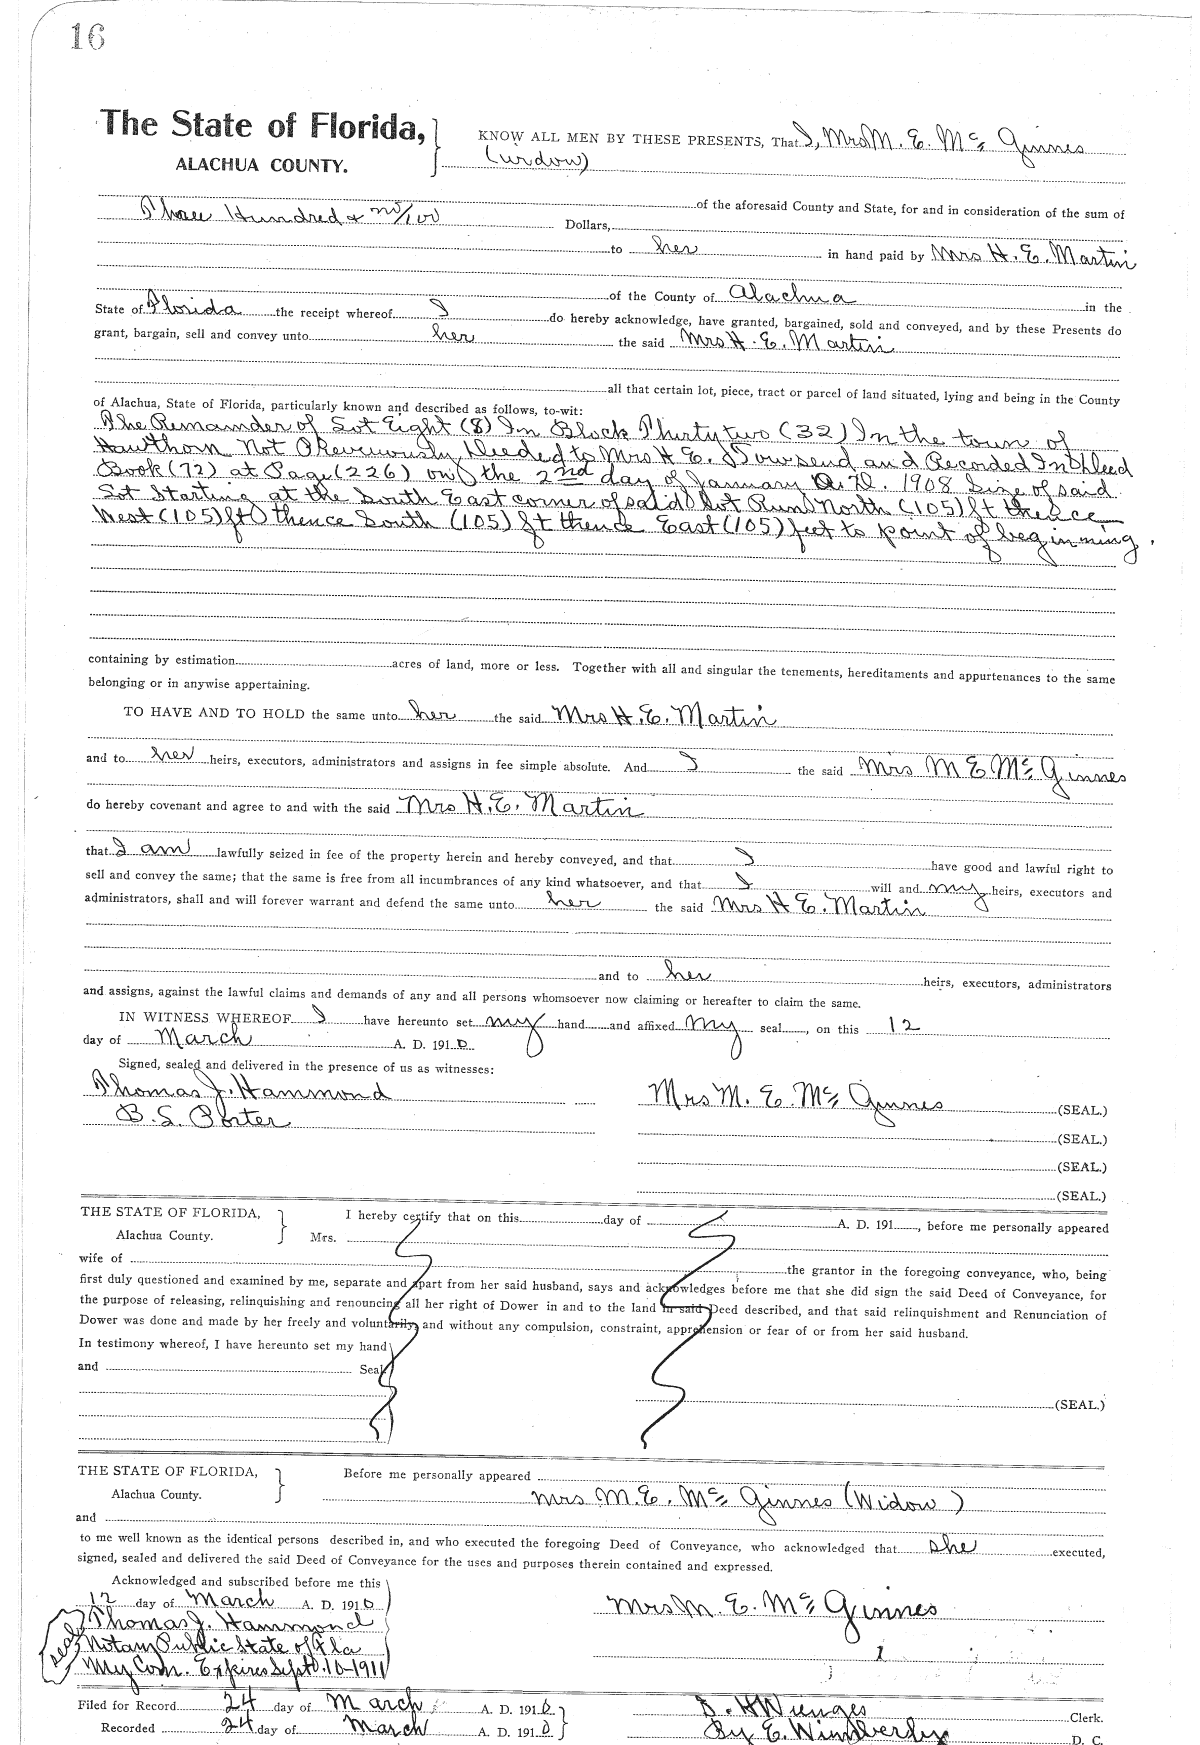 16
The State of Florida,
ALACHUA COUNTY.
KNOW ALL MEN BY THESE PRESENTS, That I, Mrs M. E. McGinnes
(widow)
of the aforesaid County and State, for and in consideration of the sum of
Three Hundred & no/100 Dollars,
to her in hand paid by Mrs H. E. Martin
of the County of Alachua in the
State of Florida the receipt whereof I do hereby acknowledge, have granted, bargained, sold and conveyed, and by these Presents do
grant, bargain, sell and convey unto her the said Mrs H. E. Martin
all that certain lot, piece, tract or parcel of land situated, lying and being in the County
of Alachua, State of Florida, particularly known and described as follows, to-wit:
The Remainder of Lot Eight (8) In Block Thirty two (32) In the town of
Hawthorn Not Previously Deeded to Mrs H E. Towsend and Recorded In Deed
Book (72) at Page (226) on the 2nd day of January A. D. 1908 Size of said
Lot Starting at the South East corner of said Lot Run North (105) ft thence
West (105) ft thence South (105) ft thence East (105) feet to point of beginning.
containing by estimation acres of land, more or less. Together with all and singular the tenements, hereditaments and appurtenances to the same
belonging or in anywise appertaining.
TO HAVE AND TO HOLD the same unto her the said Mrs H. E. Martin
and to her heirs, executors, administrators and assigns in fee simple absolute. And I the said Mrs M E McGinnes
do hereby covenant and agree to and with the said Mrs H. E. Martin
that I am lawfully seized in fee of the property herein and hereby conveyed, and that I have good and lawful right to
sell and convey the same; that the same is free from all incumbrances of any kind whatsoever, and that I will and my heirs, executors and
administrators, shall and will forever warrant and defend the same unto her the said Mrs H E. Martin
and to her heirs, executors, administrators
and assigns, against the lawful claims and demands of any and all persons whomsoever now claiming or hereafter to claim the same.
IN WITNESS WHEREOF I have hereunto set my hand and affixed my seal, on this 12
day of March A. D. 1910.
Signed, sealed and delivered in the presence of us as witnesses:
Thomas J. Hammond
B. S. Porter
Mrs M. E. McGinnes (SEAL.)
(SEAL.)
(SEAL.)
(SEAL.)
THE STATE OF FLORIDA,
Alachua County.
I hereby certify that on this day of A. D. 191 , before me personally appeared
Mrs.
wife of the grantor in the foregoing conveyance, who, being
first duly questioned and examined by me, separate and apart from her said husband, says and acknowledges before me that she did sign the said Deed of Conveyance, for
the purpose of releasing, relinquishing and renouncing all her right of Dower in and to the land in said Deed described, and that said relinquishment and Renunciation of
Dower was done and made by her freely and voluntarily, and without any compulsion, constraint, apprehension or fear of or from her said husband.
In testimony whereof, I have hereunto set my hand
and Seal
(SEAL.)
THE STATE OF FLORIDA,
Alachua County.
Before me personally appeared
Mrs M. E. McGinnes (Widow)
and
to me well known as the identical persons described in, and who executed the foregoing Deed of Conveyance, who acknowledged that she executed,
signed, sealed and delivered the said Deed of Conveyance for the uses and purposes therein contained and expressed.
Acknowledged and subscribed before me this
12 day of March A. D. 1910
Thomas J. Hammond
seal
Notary Public State of Fla
My Com. Expires Sept. 10-1911
Mrs M. E. McGinnes
Filed for Record 24 day of March A. D. 1910
Recorded 24 day of March A. D. 1910
S. H Wienges Clerk.
By E. Wimberly D. C.